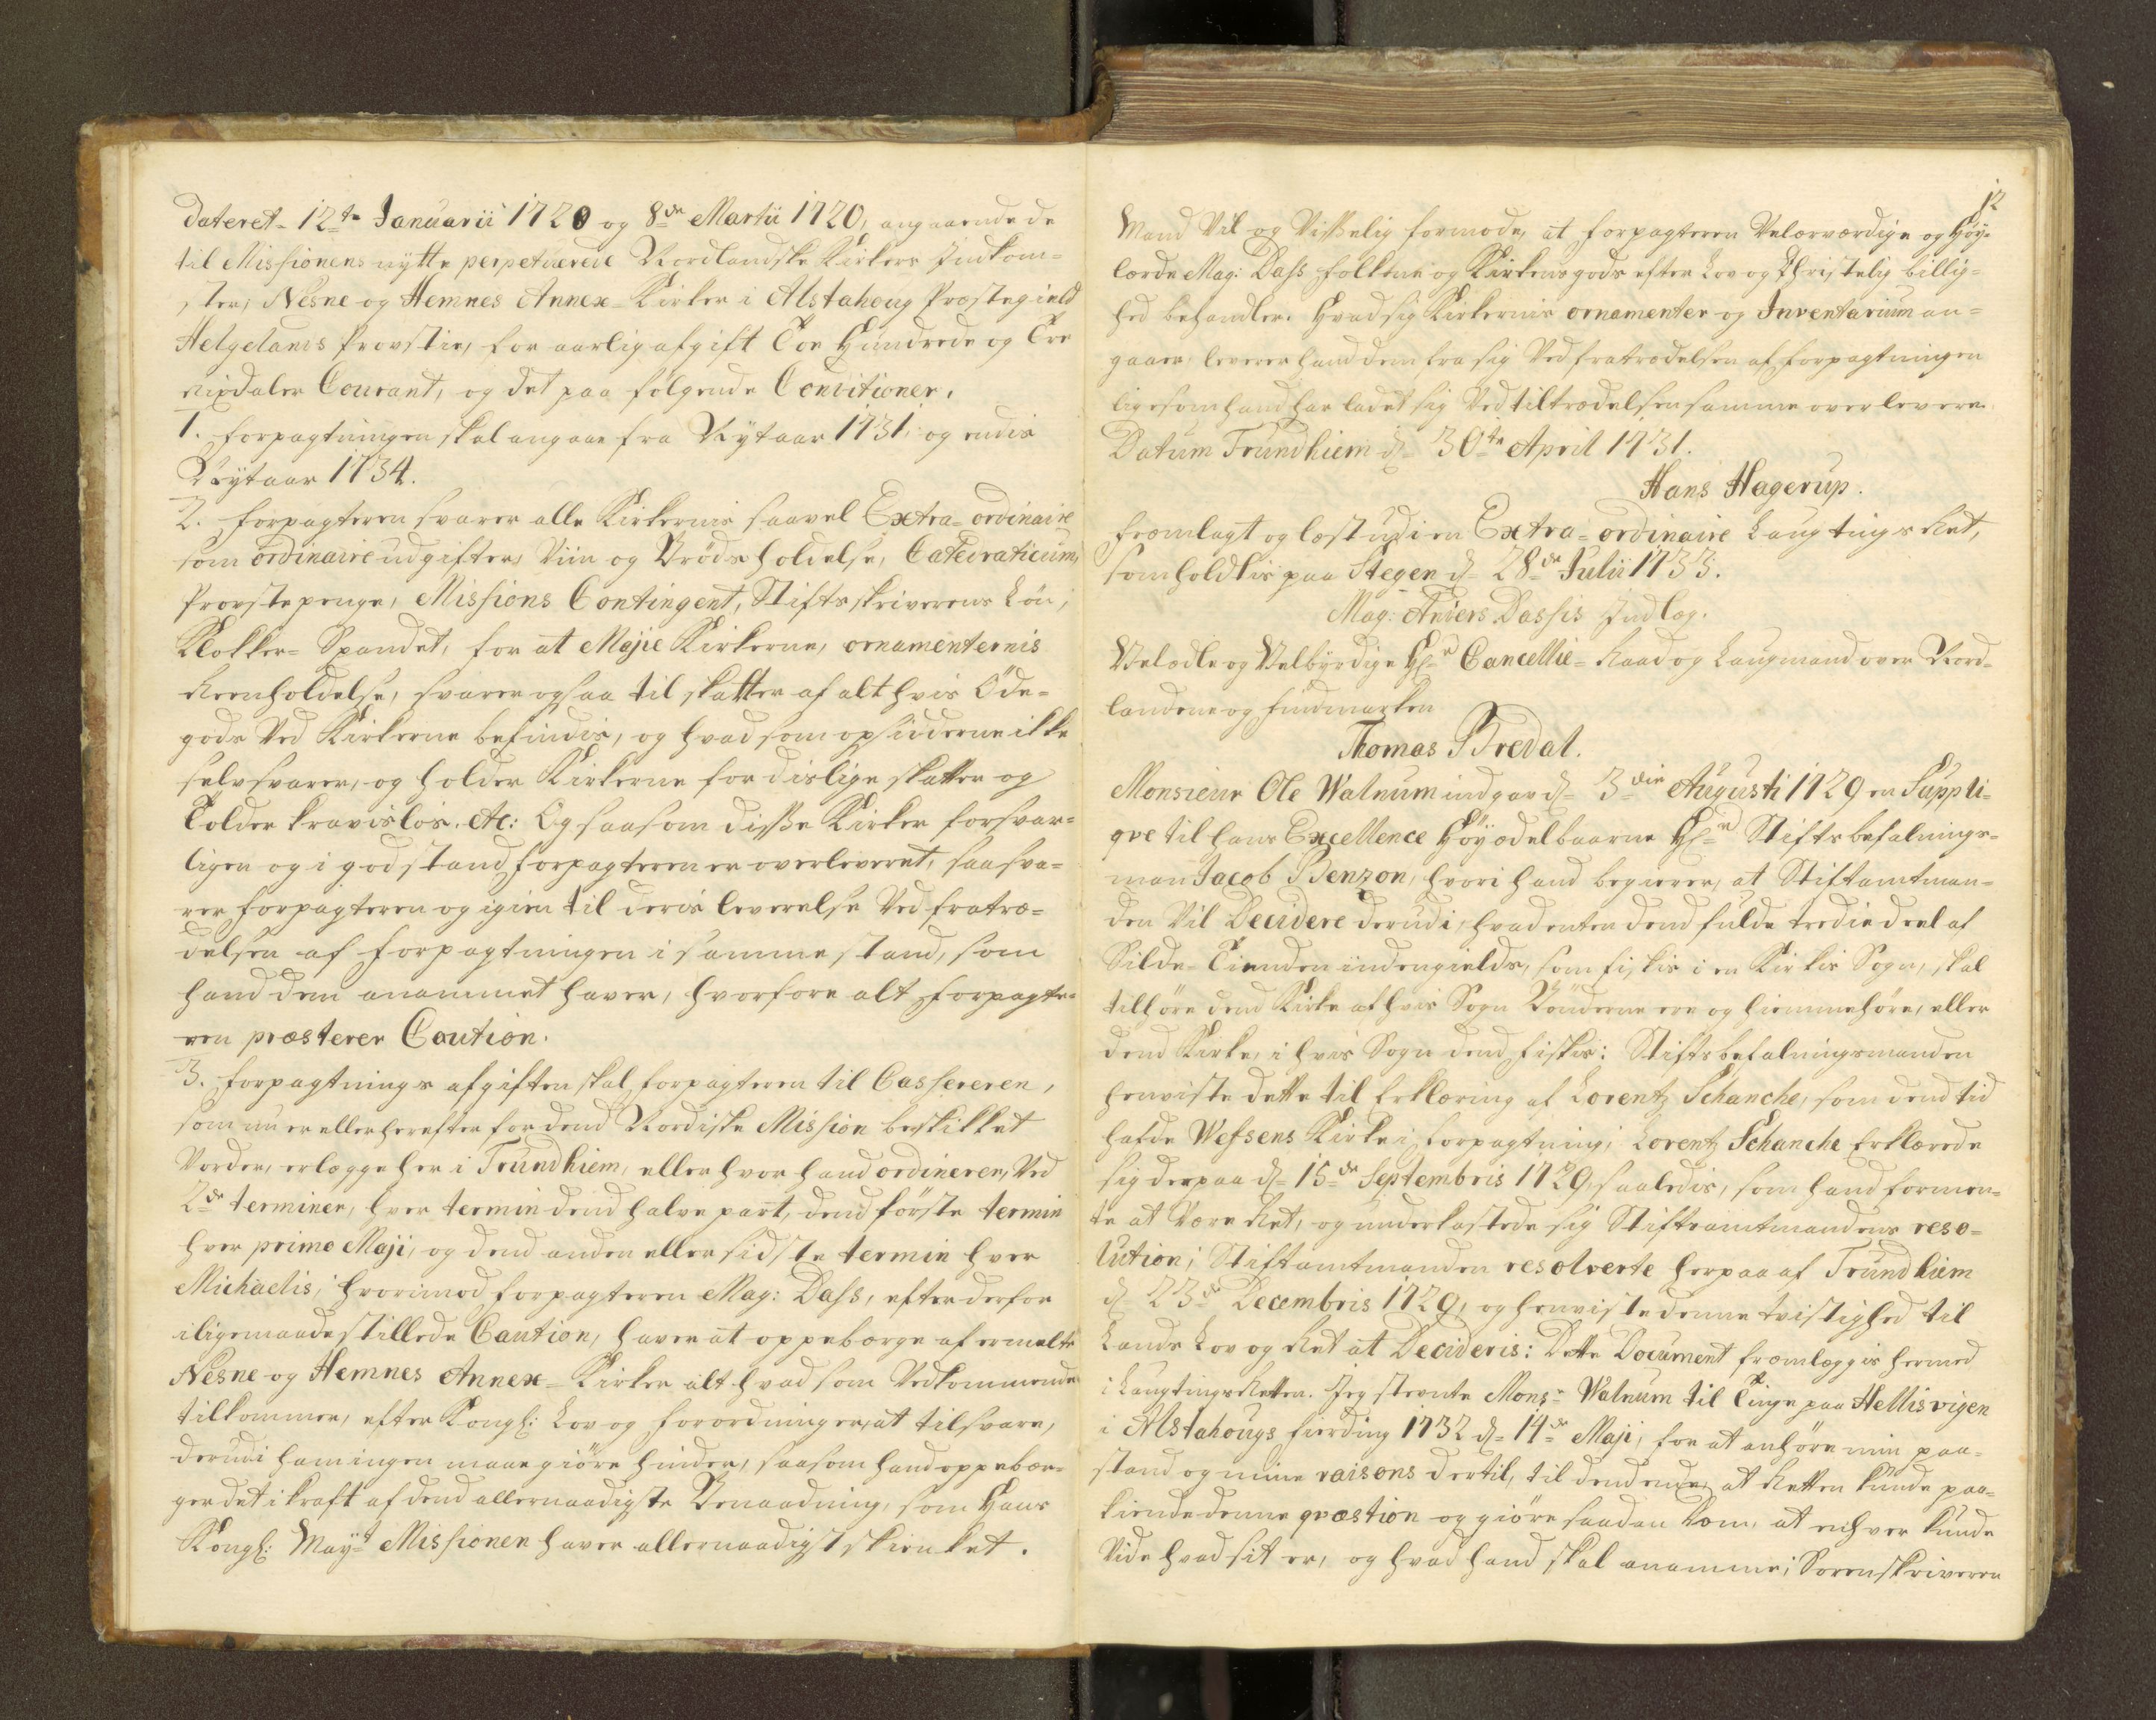 dateret 12te Januarii 1720 og 8de Martii 1720, angaaende de
til Missionens nytte perpetuerede Nordlandske Kirkers Indkom-
ster, Nesne og Hemnes Annex-Kirker i Alstahoug Præstegield
Helgelands Provstie, for aarlig afgift Toe Hundrede og Tre
Rixdaler Courant, og det paa følgende Conditioner.
1. Forpagtningen skal angaae fra Nytaar 1731, og endis
Nytaar 1734.
2. Forpagteren svarer alle Kirkernis saavel Extra-ordinaire
som ordinaire udgifter, Viin og Brøds holdelse, Catedraticum,
Provstepenge, Missions Contingent, Stiftsskriverens Løn,
Klokker-Spandet, for at Majie Kirkerne, ornamenternis
Reenholdelse, svarer ogsaa til skatter af alt hvis Øde-
gods ved Kirkerne befindis, og hvad som opsidderne ikke
selv svarer, og holder Kirkerne for dislige skatter og
Tolder kravisløs. etc: Og saasom disse Kirker forsvar-
ligen og i god stand forpagteren er overleveret, saa sva-
rer forpagteren og igien til deris leverelse ved fratræ-
delsen af forpagtningen i samme stand, som
hand dem anammet haver, hvorfore alt forpagte-
ren præsterer Caution.
3. Forpagtnings afgiften skal forpagteren til Cassereren,
som nu er eller herefter for dend Nordiske Mission beskikket
vorder, erlegge her i Trundhiem, eller hvor hand ordinerer, ved
2de terminer, hver termin dend halve part, dend første termin
hver primo Maji, og dend anden eller sidste termin hver
Michaelis; hvorimod forpagteren Mag: Dass, efter derfor
iligemaade stillede Caution, haver at oppebærge af ermelte
Nesne og Hemnes Annex-Kirker alt hvad som vedkommende
tilkommer, efter Kongl: Lov og forordninger, at tilsvare,
derudi ham ingen maae giøre hinder, saasom hand oppebær-
ger det i kraft af dend allernaadigste Benaadning, som Hans
Kongl: May.t Missionen haver allernaadigst skienket.
12
Mand vil og visselig formode, at forpagteren Velærværdige og Høy-
lærde Mag: Dass folkene og Kirkens gods efter Lov og Christelig billig-
hed behandler. Hvad sig Kirkernis ornamenter og Inventarium an-
gaaer, leverer hand dem fra sig ved fratrædelsen af forpagtningen
ligesom hand har ladet sig ved tiltrædelsen samme overlevere.
Datum Trundhiem d. 30te April 1731.
Hans Hagerup.
Fremlagt og læst udi en Extra-ordinaire Laugtings Ret,
som holdtis paa Stegen d. 28de Julii 1733.
Mag: Anders Dassis Indlæg.
Velædle og Velbyrdige Hr. Cancellie-Raad og Laugmand over Nord-
landene og Findmarken
Thomas Bredal.
Monsieur Ole Walnum indgav d. 3die Augusti 1729 en Suppli-
qve til hans Excellence Høyædelbaarne Hr. Stiftsbefalnings-
man Jacob Benzon, hvori hand begierer, at Stiftamtman-
den vil Decidere derudi, hvad enten dend fulde tredie deel af
Silde-Tienden indengields, som fiskis i en Kirkis Sogn, skal
tilhøre dend Kirke af hvis Sogn Bønderne ere og hiemmehøre, eller
dend Kirke, i hvis Sogn dend fiskis: Stiftsbefalningsmanden
henviste dette til Erklæring af Lorentz Schanche, som dend tid
hafde Wefsens Kirke i forpagtning; Lorentz Schanche Erklærede
sig derpaa d. 15de Septembris 1729, saaledis, som hand formen-
te at være Ret, og underkastede sig Stiftamtmandens reso-
lution; Stiftamtmanden resolverte herpaa af Trundhiem
d. 23de Decembris 1729, og henviste denne tvistighed til
Lands Lov og Ret at Decideris: Dette Document fremlæggis hermed
i Laugtings Retten. Jeg stevnte Monsr. Walnum til Tinge paa Hellisvigen
i Alstahougs fierding 1732 d. 14de Maji, for at anhøre min paa-
stand og mine raisons dertil, til dend ende, at Retten kunde paa-
kiende denne qvæstion og giøre saadan Dom, at enhver kunde
vide hvad sit er, og hvad hand skal anamme; Sorenskriveren